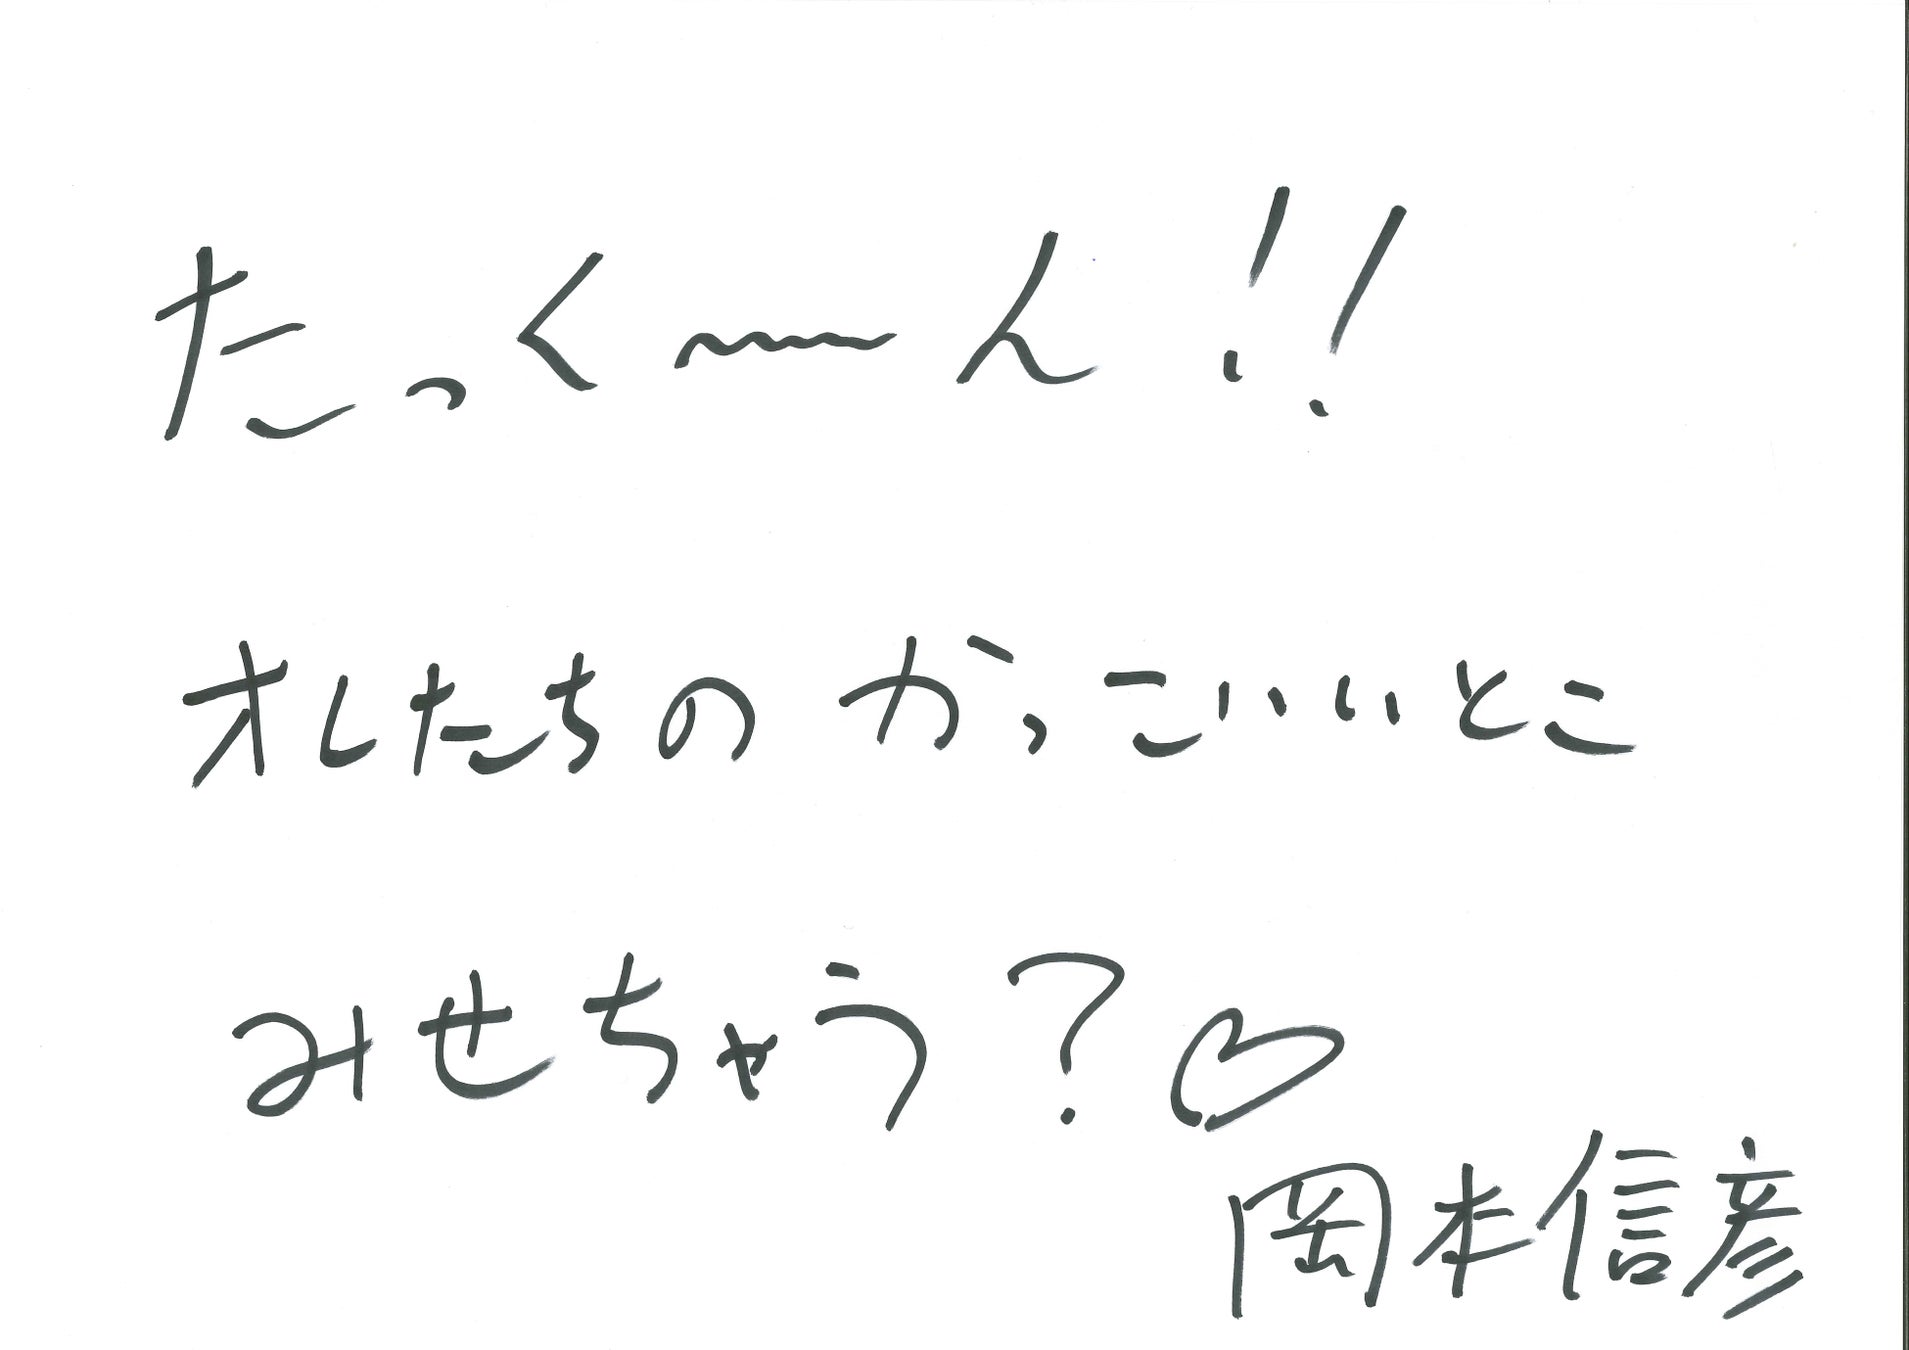 たっく〜ん!!
オレたちの かっこいいとこ
みせちゃう?♡
岡本信彦